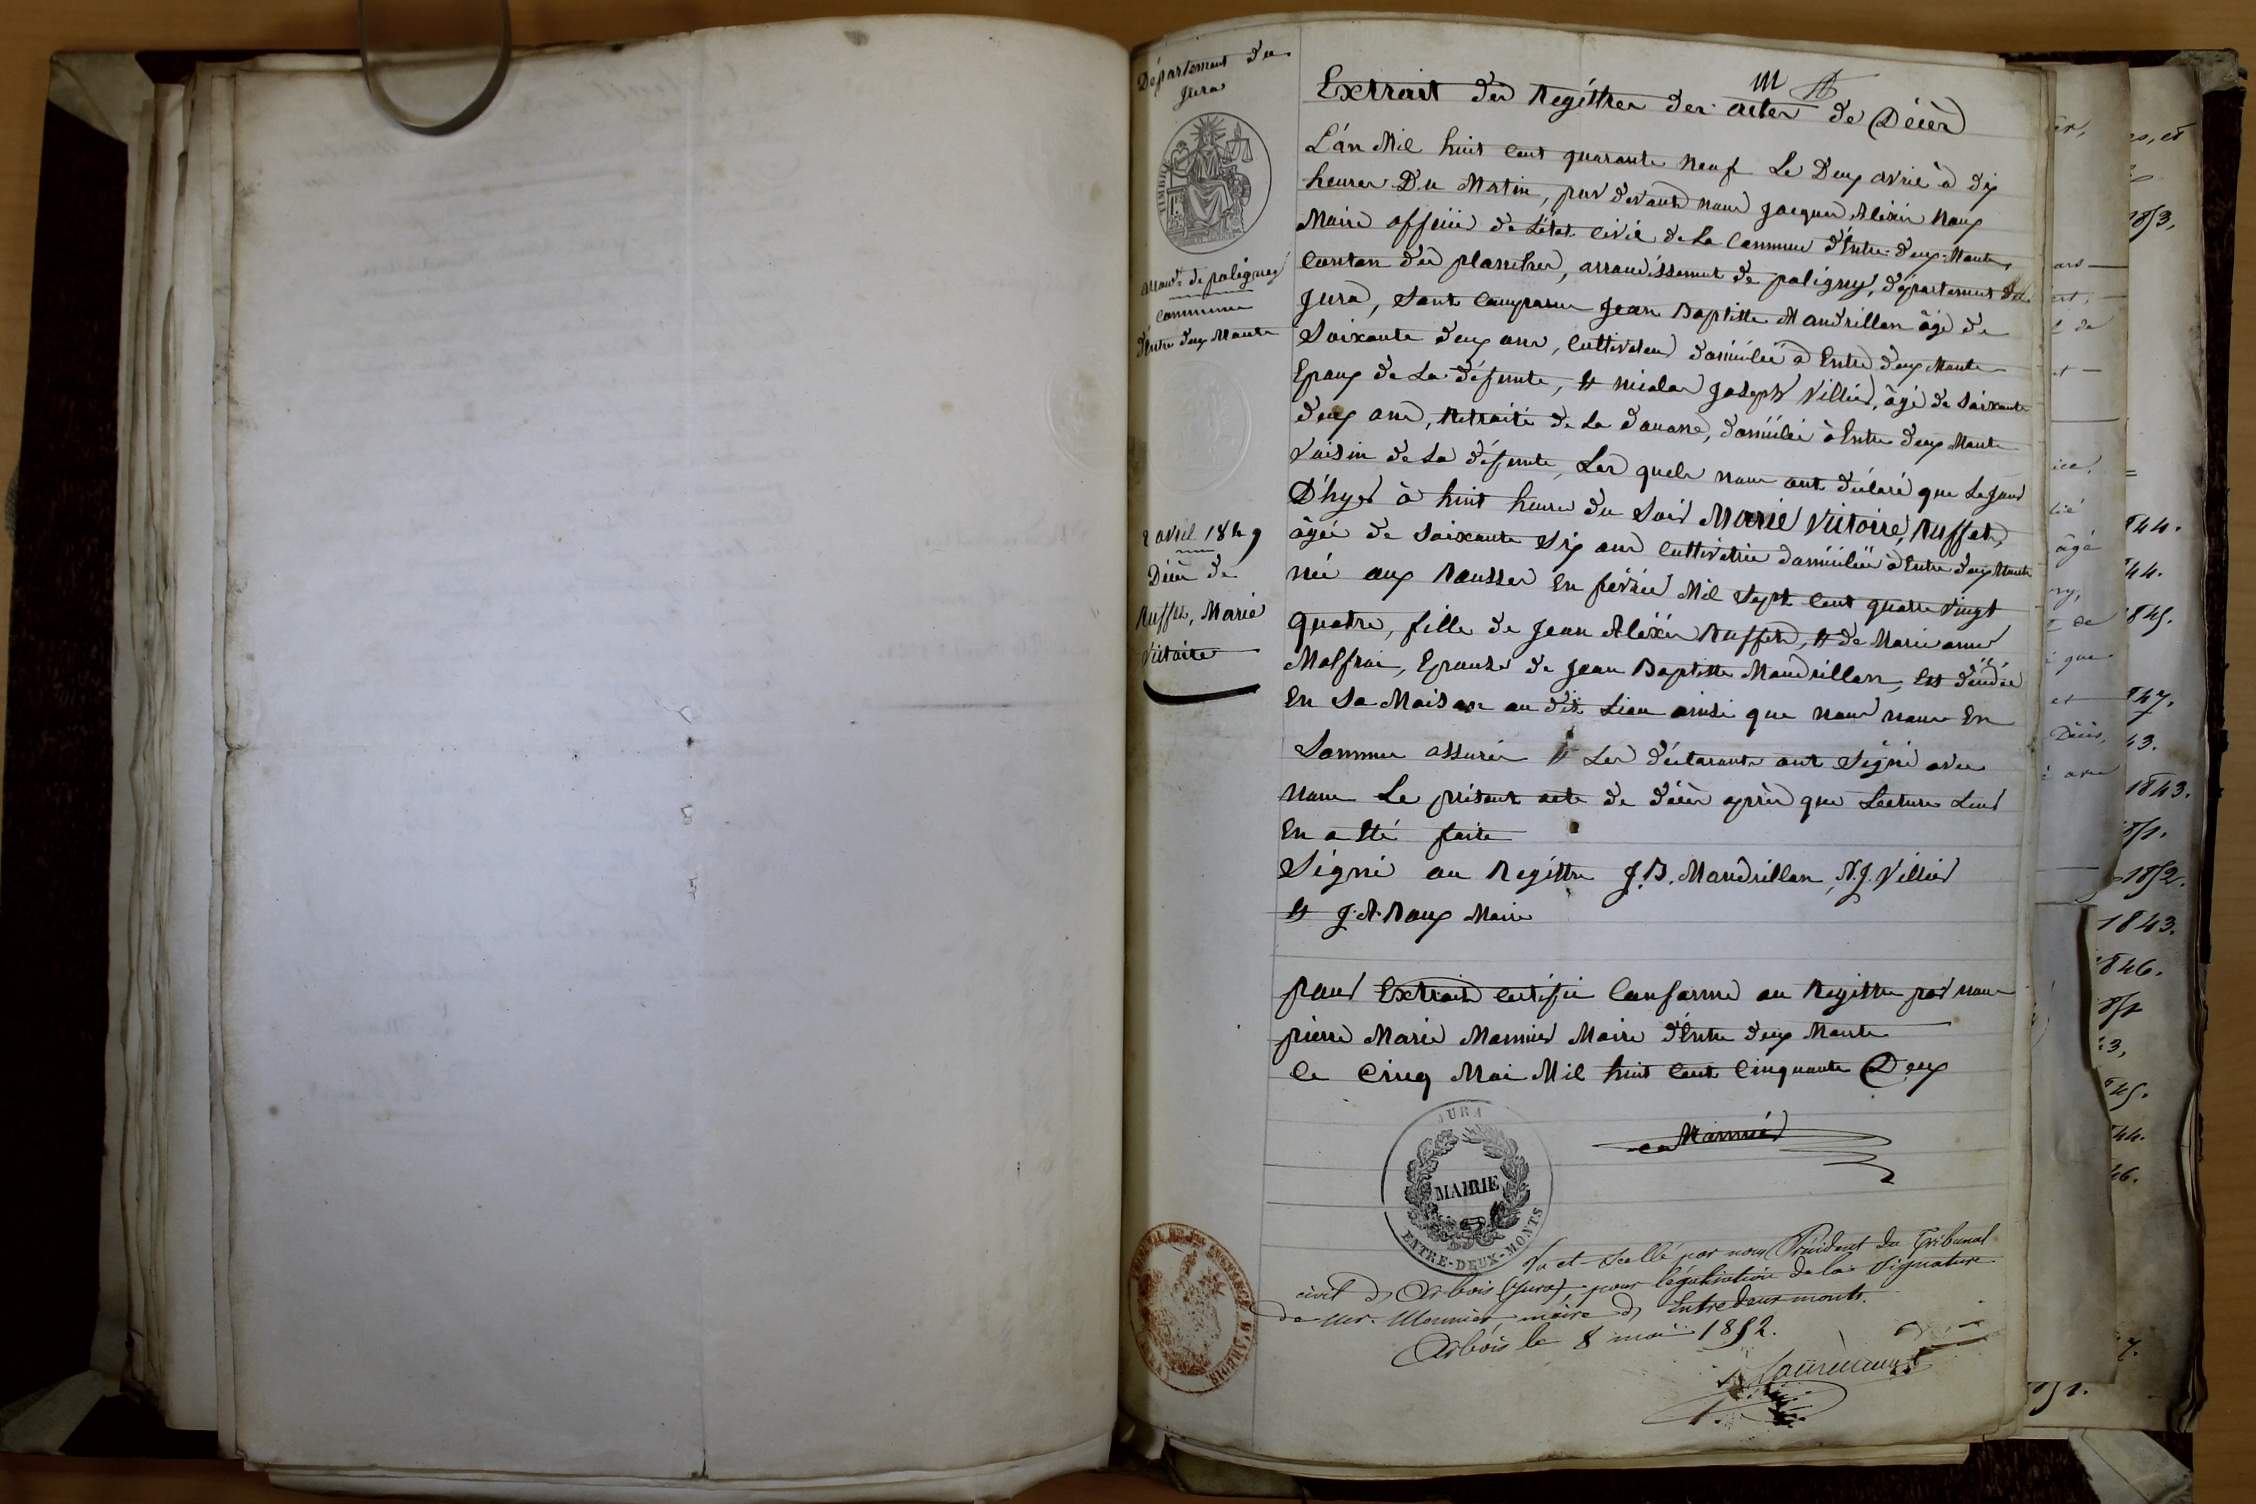 Département du
Jura
arrond.t de poligny
commune
d'Entre deux Monts
2 avril 1849
Décès de
Ruffet, Marie
Victoire
Extrait des Regittres des actes de Décès
L'an Mil huit cent quarante neuf Le Deux avril à dix
heures Du Matin, par devant nous Jacques Aléxis Roux
Maire officié de L'état civil de La Commune d'Entre-deux-Monts,
Canton des planches, arrondissement de poligny, département du
Jura, Sont Comparus Jean Baptitte Mandrillon âgé de
Soixante deux ans, Cultivateur domicilié à Entre deux Monts
Epoux de La défunte, Et nicolas Joseph Villier, âgé de Soixante
deux ans, Retraité de La douane, domicilié à Entre deux Monts
Voisin de La défunte, Les quels nous ont déclaré que Le jour
D'hyer à huit heures du Soir Marie Victoire, Ruffet,
âgée de Soixante Six ans Cultivatrice domiciliée à Entre deux Monts
née aux Rousses En février Mil Sept Cent quatre Vingt
quatre, fille de Jean Aléxis Ruffet, Et de Marie anne
Malfroi, Epouse de Jean Baptitte Mandrillon, Est décédée
En Sa Maison au dit Lieu ainsi que nous nous En
Sommes assurés Et Les déclarants ont Signé avec
nous Le présent acte de décès après que Lecture Leur
En a Eté faite
Signé au Regittre J.B. Mandrillon, N.J. Villier
Et J.A. Roux Maire
pour Extrait Certifié Conforme au Regittre par nous
pierre Marie Monnier Maire d'Entre deux Monts
le Cinq Mai Mil huit Cent Cinquante Deux
Monnier
JURA
MAIRIE
ENTRE-DEUX-MONTS
Vu et Scellé par nous Président du Tribunal
civil d'Arbois (Jura), pour légalisation de la Signature
de Mr. Monnier maire d'Entre deux monts.
Arbois le 8 mai 1852.
TRIBUNAL DE 1re INSTANCE D'ARBOIS